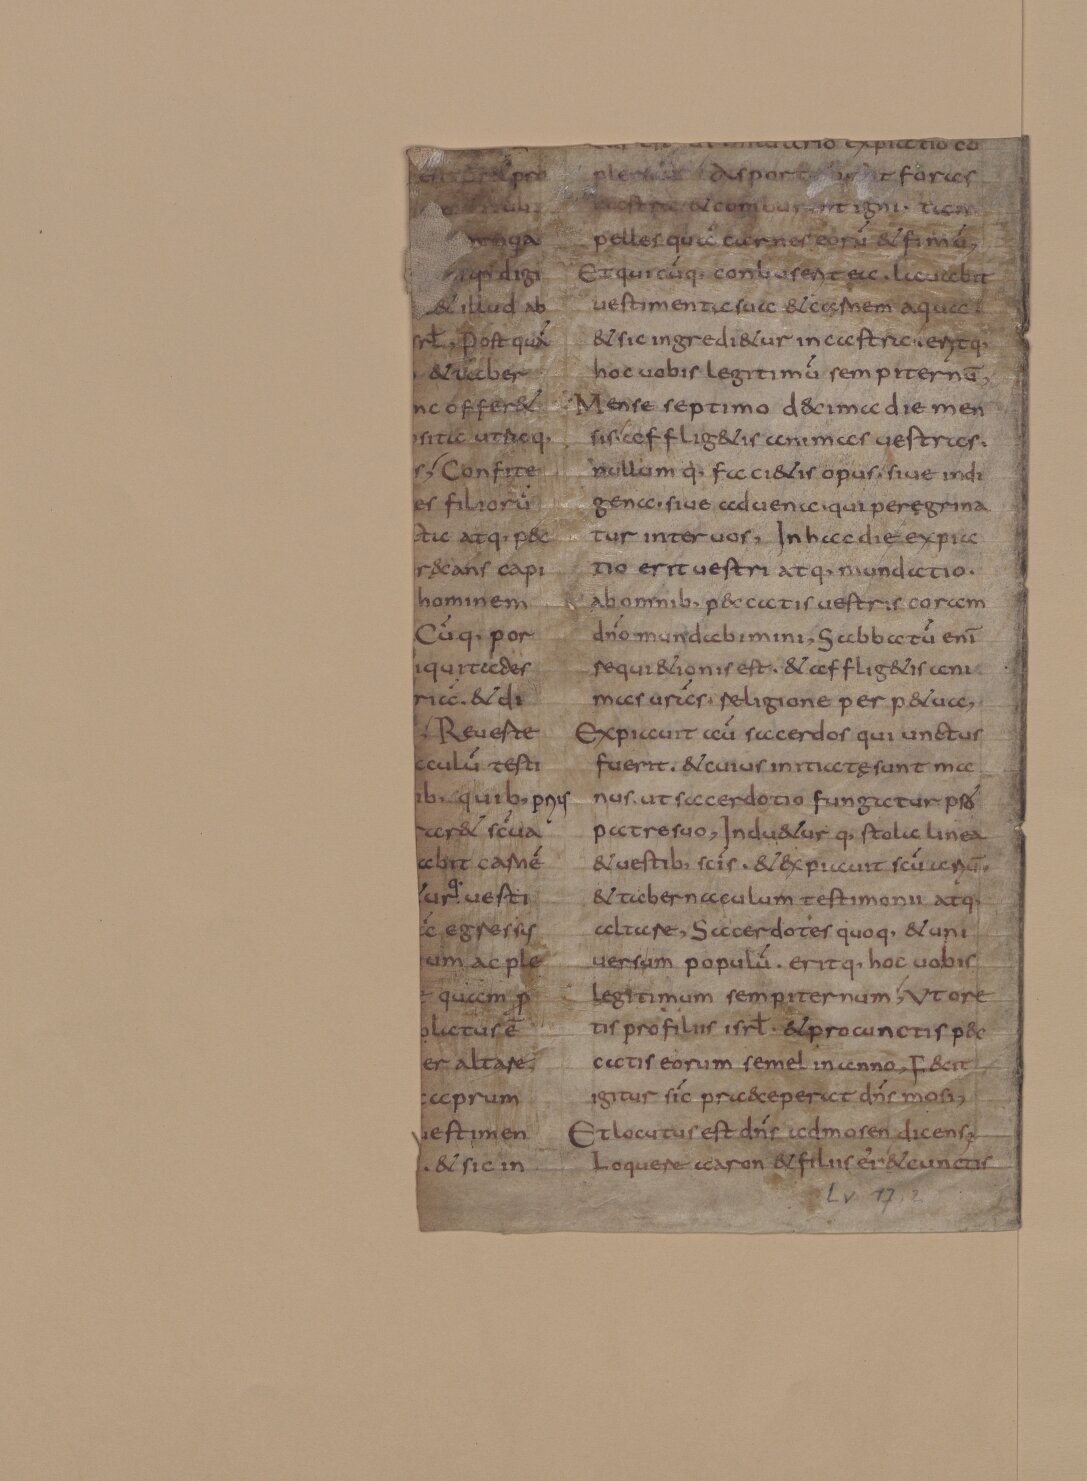 pro
nega
qi digi
& illud ab
srł, Post quā
& taber
nc offer&
sita utraq,
s, Confite
es filiorū
tia atq, p&c
r&cans capi
hominem
Cūq, por
iquitates
riā. & di
Reueste
aculū testi
ib, quib, prius
car& scūa
abit carnē
&urq, uesti
āc egressus
um ac ple
quam p̄
olatus ē
er altare,
caprum
uestimen
. & sic in
ario expiatio co
pler& asport foras
castra & comburent igni. tam
pelles quā carnes eorū & fimū,
Et quicūq, conbuserit ea. lauabit
uestimenta sua & carnem aqua.
& sic ingredi&ur in castra. eritq,
hoc uobis legitimū sempiternū,
Mense septimo decima die men
sis, afflig&is animas uestras.
nullum q, faci&is opus, siue indi
gena, siue aduena, qui peregrina
tur inter uos, In hac die expia
tio erit uestri atq, mundatio.
ab omnib, p&ccatis uestris coram
dn̄o mundabimini, Sabbatū enī
requi&ionis est. & afflig&is ani
mas ur̄as, religione perp&ua,
Expiauit aū sacerdos qui unctus
fuerit. & cuius initiatę sunt ma
nus. ut sacerdotio fungatur p̄
patre suo, Indu&ur q, stola linea
& uestib, scīs. & expiauit scūarīū.
& tabernaculum testimonii atq,
altare, Sacerdotes quoq, & uni
uersum populū. eritq, hoc uobis
legitimum sempiternum, Ut ore
tis pro filiis isrł. & pro cunctis p&c
catis eorum semel in anno, Fecit
igitur sīc praeceperat dn̄s mosi,
Et locutus est dn̄s ad mosen dicens,
Loquere aaron & filiis ei & cunctis
Lv 17,2